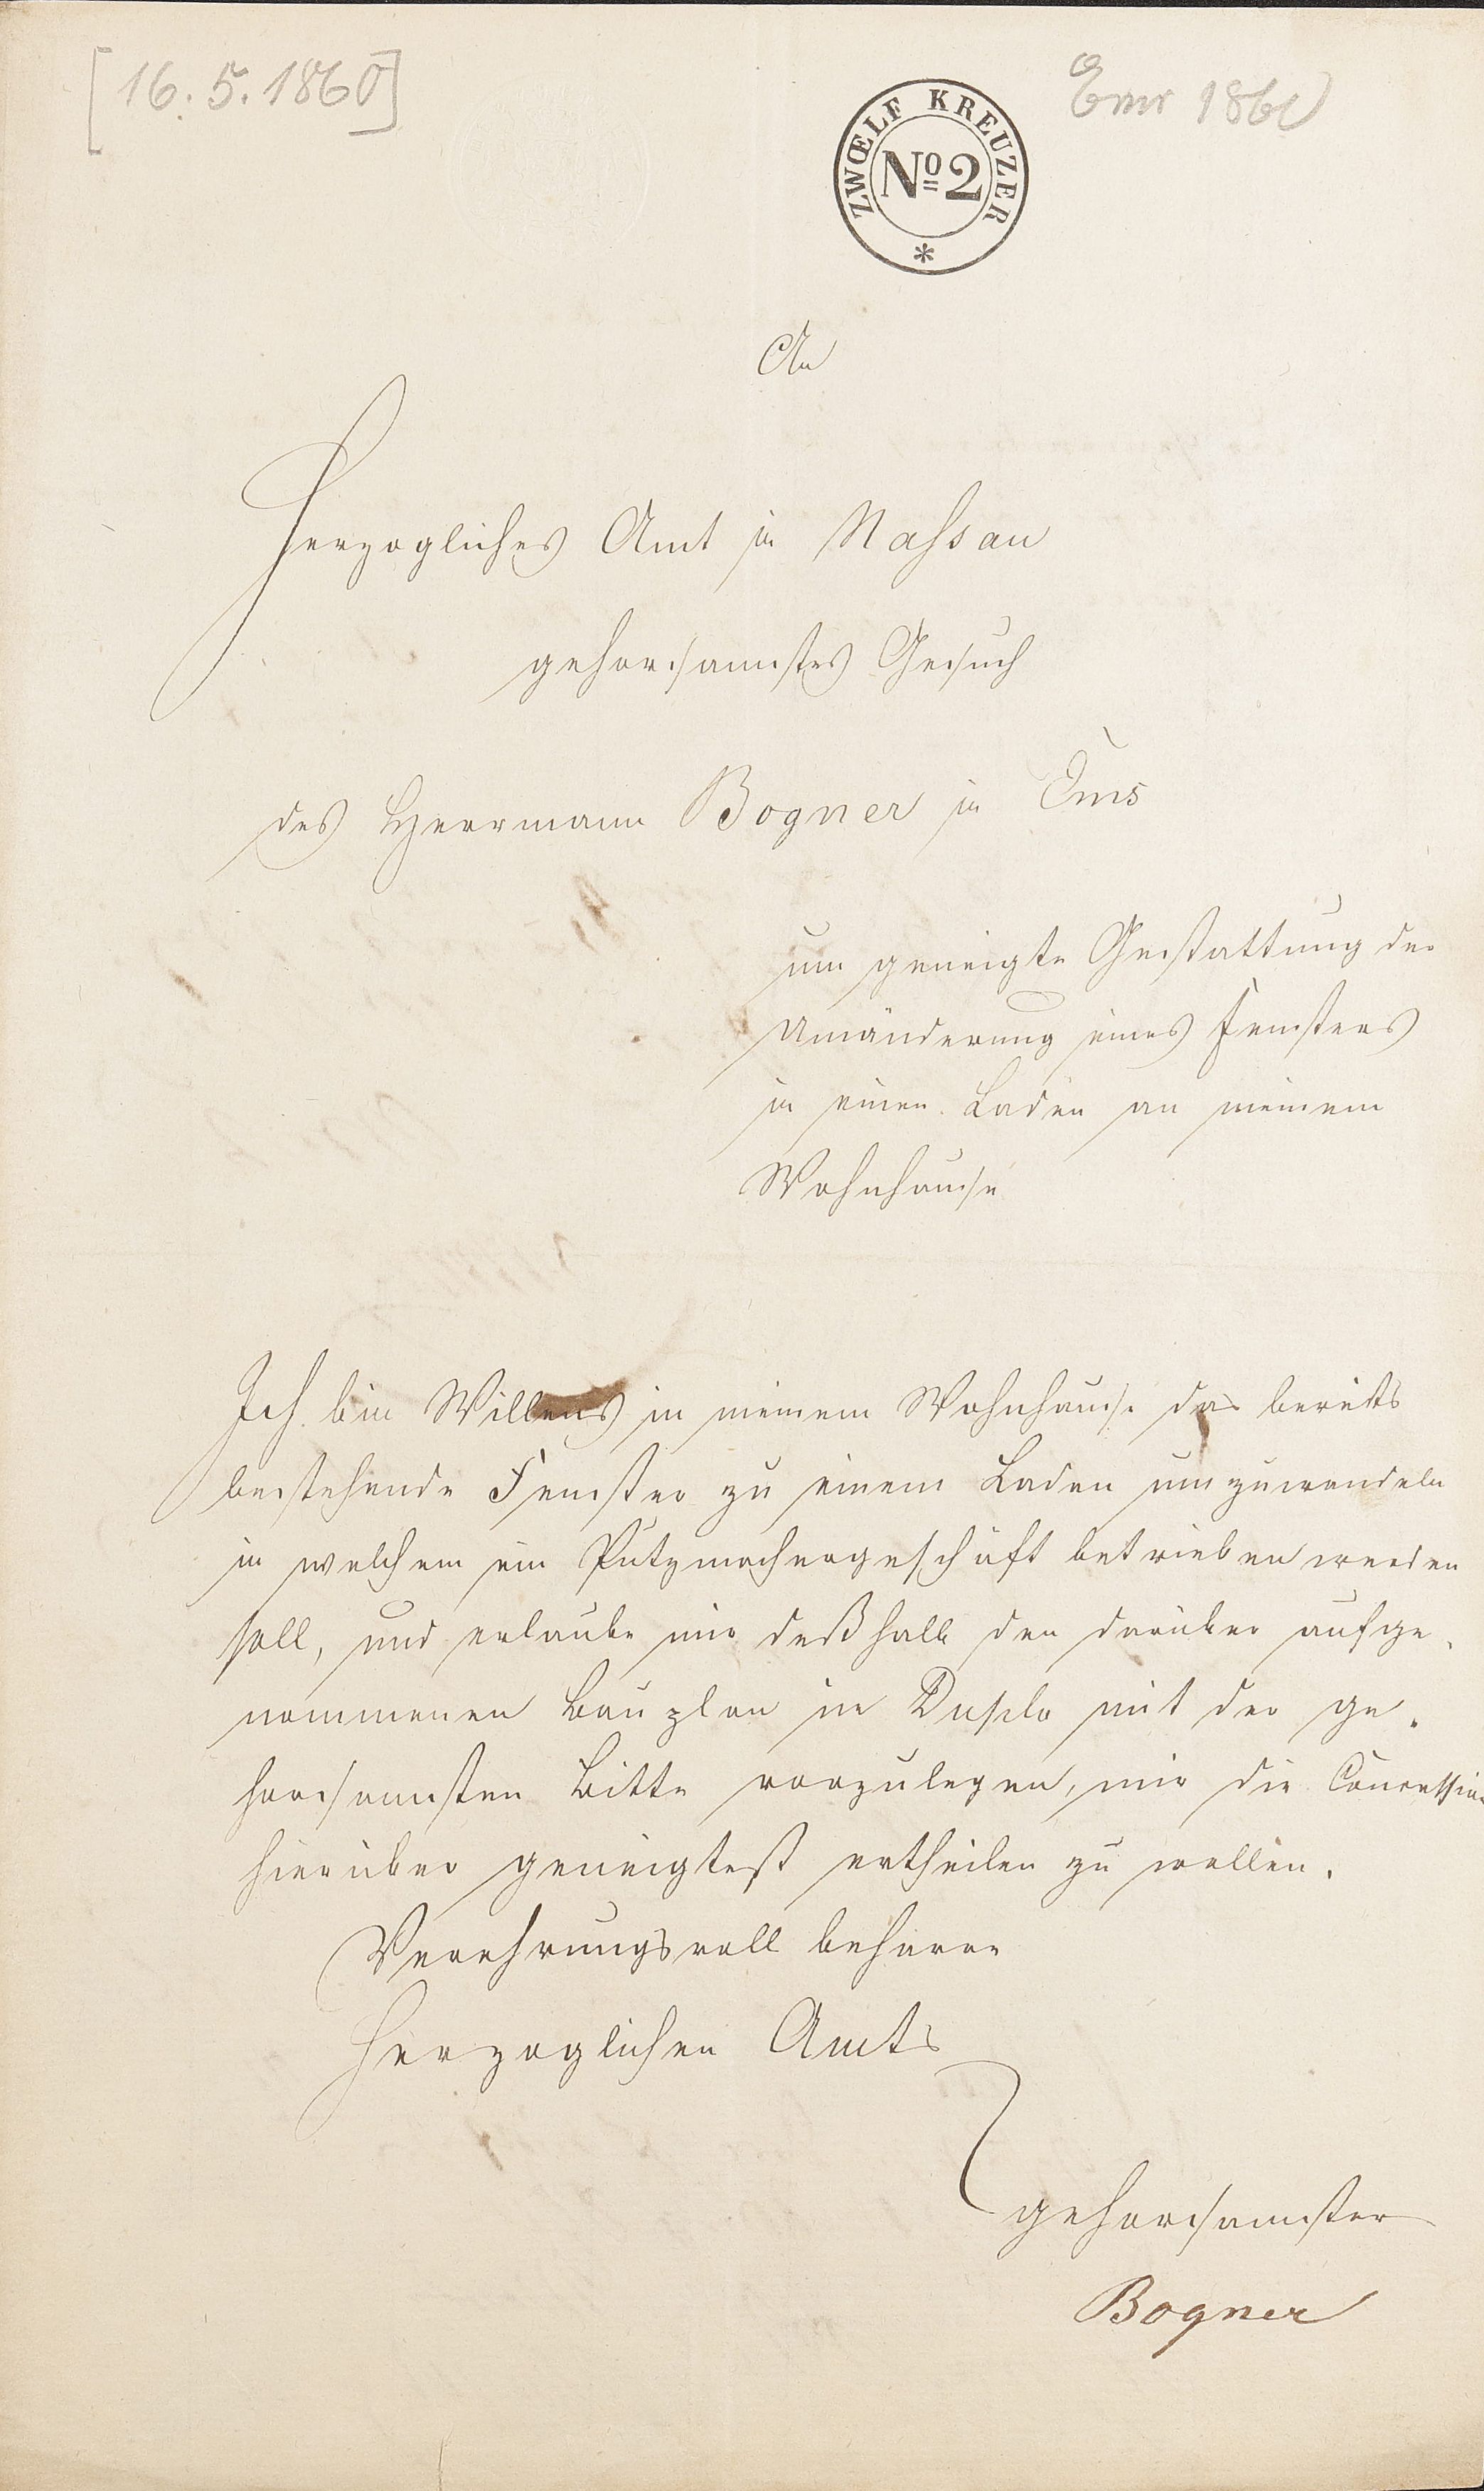 [16.5.1860]
Ems 1860
ZWŒLF KREUZER
No 2
*
An
Herzogliches Amt in Nassau
gehorsamstes Gesuch
des Herrmann Bogner in Ems
um geneigte Gestattung der
Umänderung eines Fensters
in einen Laden an meinem
Wohnhause
Ich bin Willens in meinem Wohnhause das bereits
bestehende Fenster zu einem Laden umzuwandeln
in welchem ein Putzmachergeschäft betrieben werden
soll, und erlaube mir deßhalb den darüber aufge-
nommenen Bauplan in Duplo mit der ge-
horsamsten Bitte vorzulegen, mir die Concession
hierüber geneigtest ertheilen zu wollen.
Verehrungsvoll beharre
Herzoglichen Amts
gehorsamster
Bogner